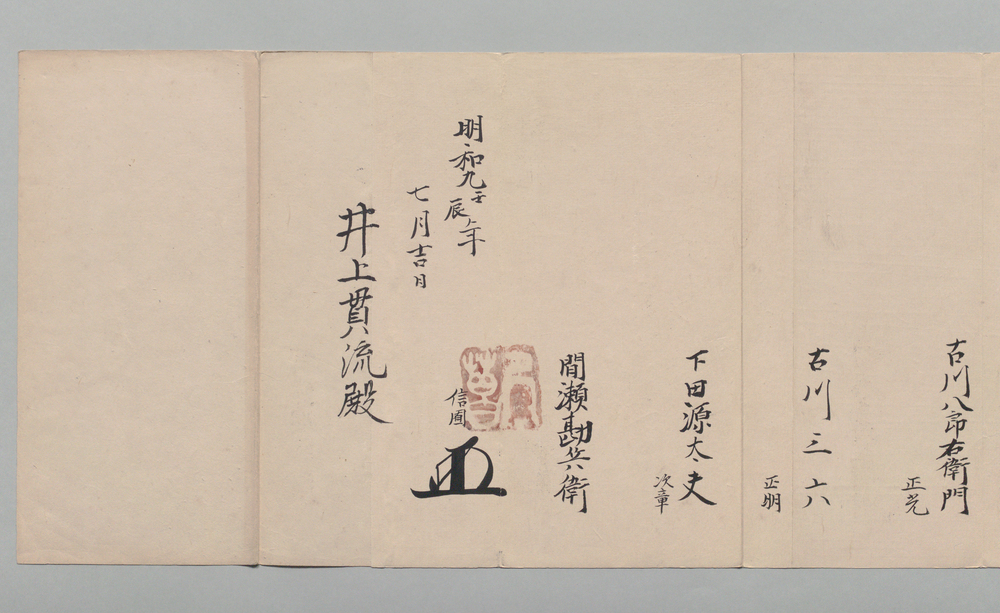 古川八郎右衛門
正光
古川三六
正明
下田源太夫
次章
間瀬勘兵衛
信圃
明和九壬辰年
七月吉日
井上貫流殿